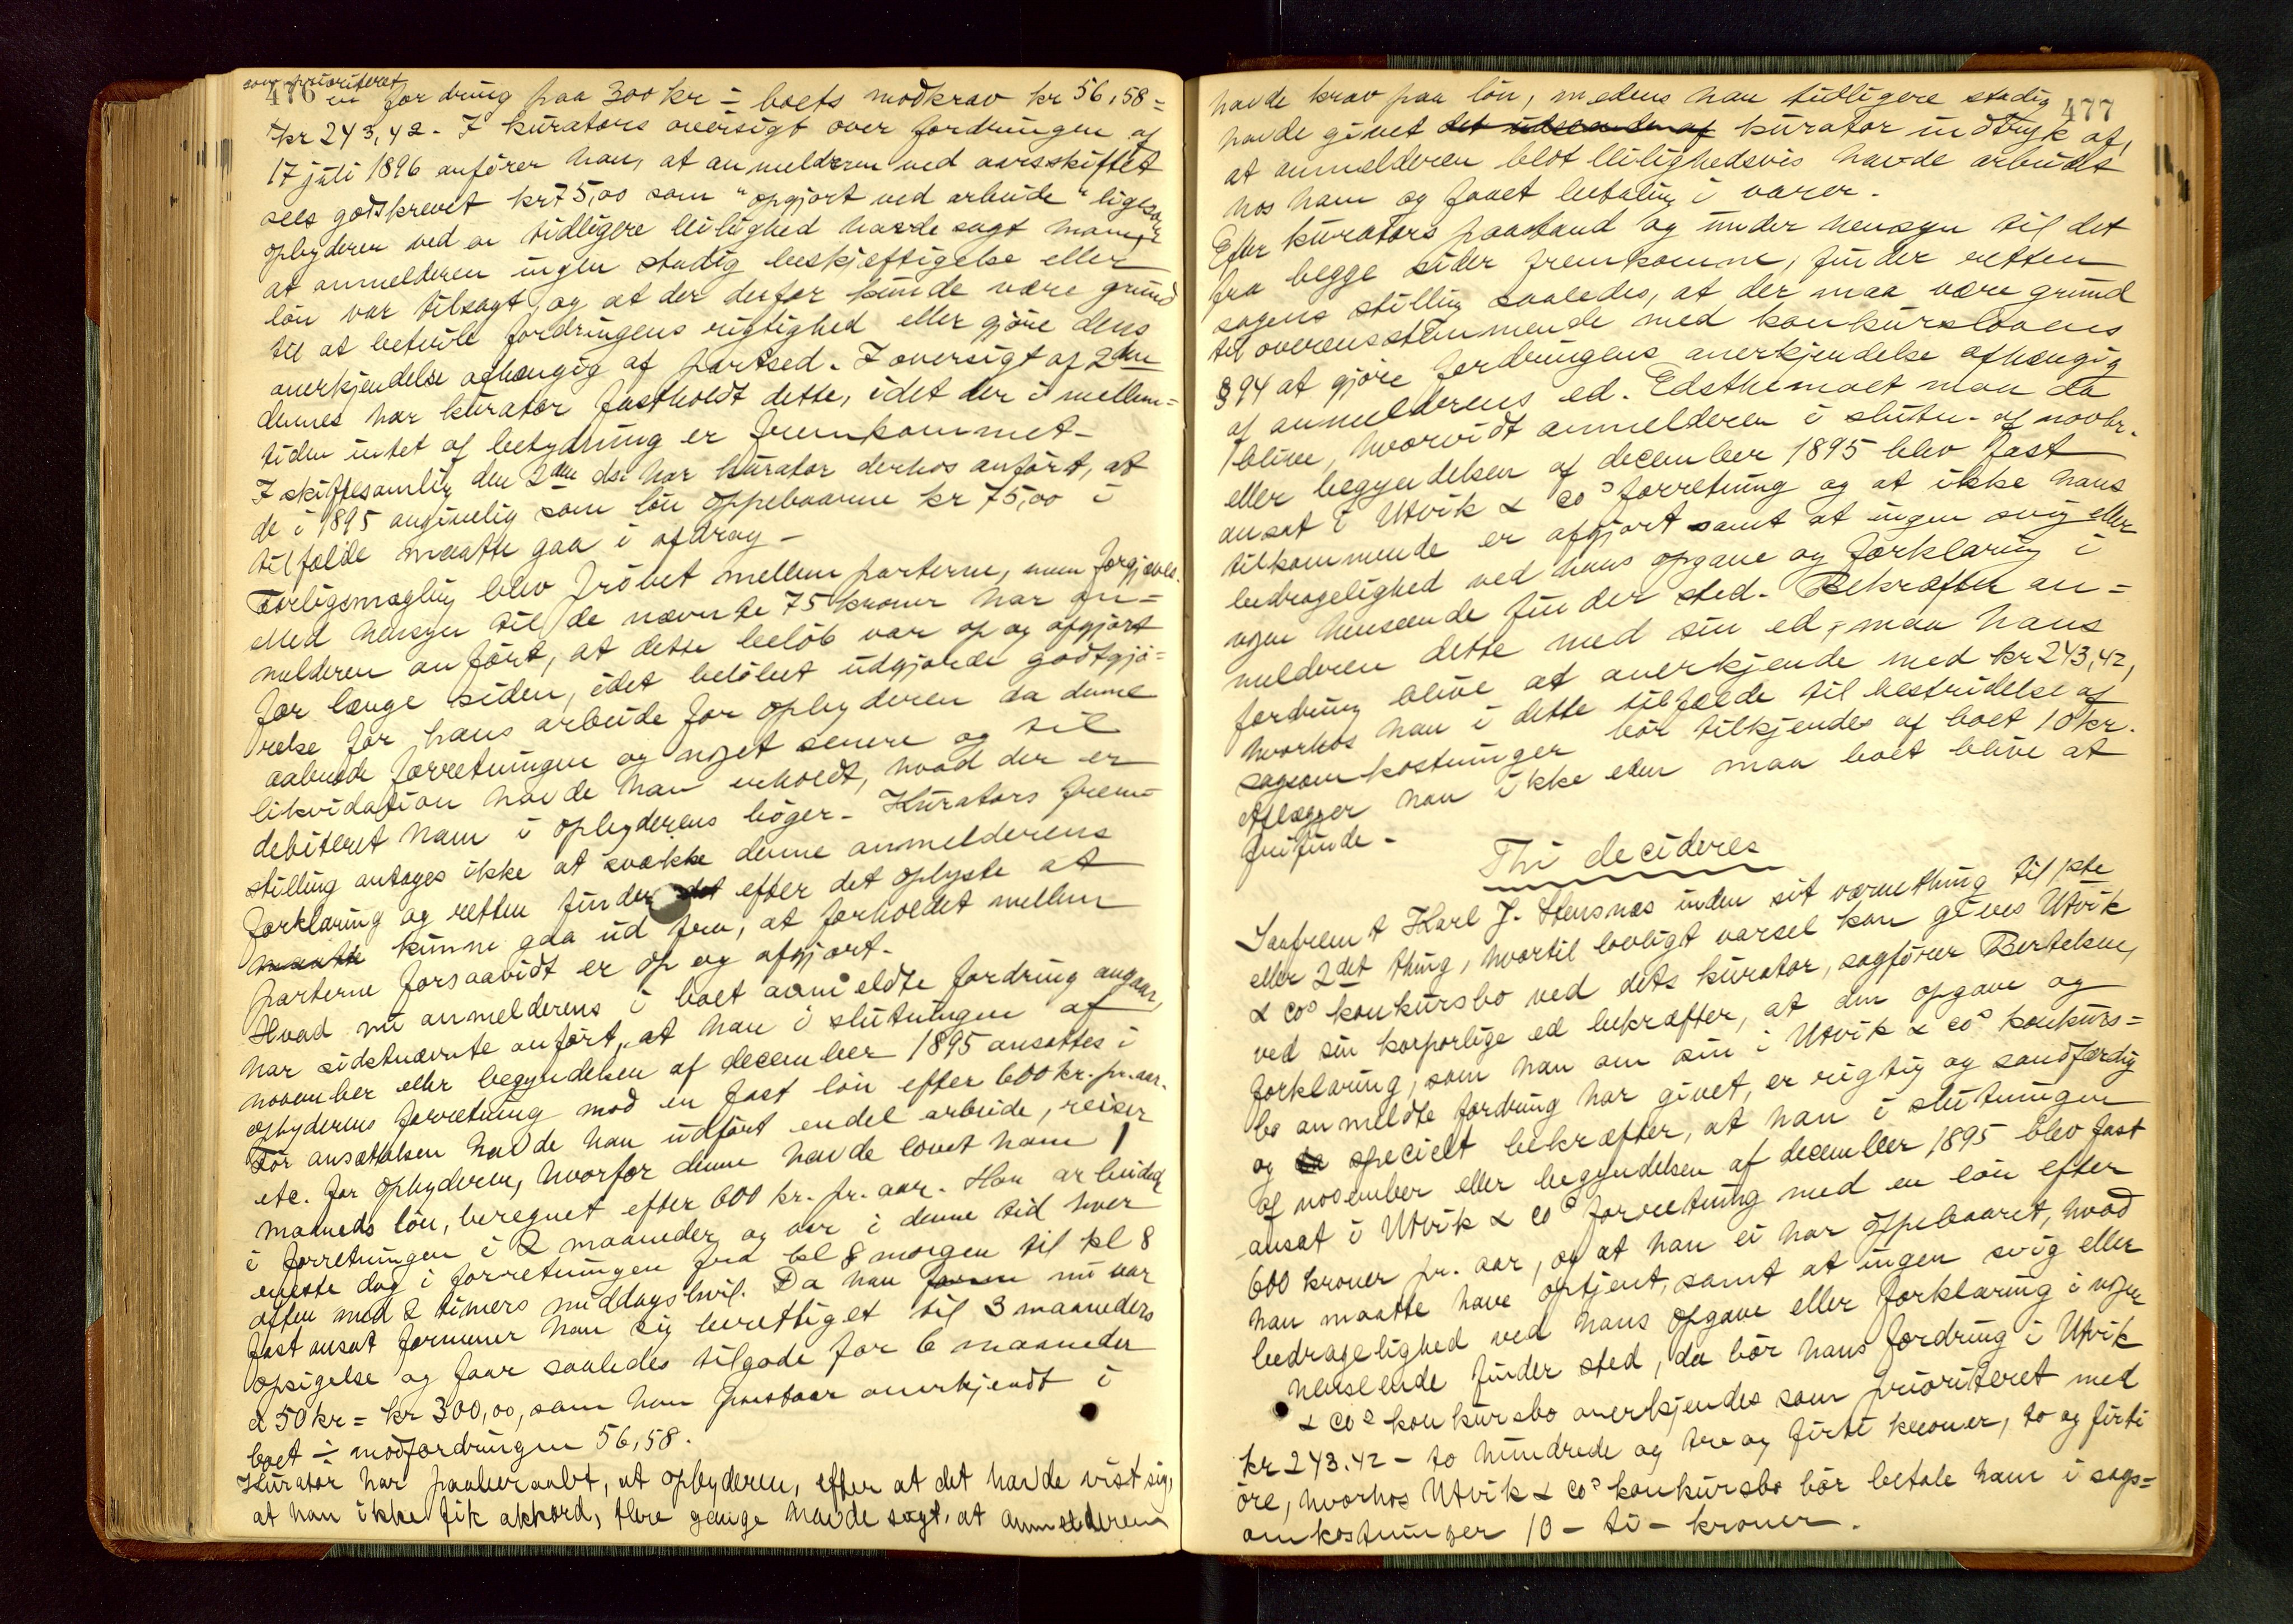 som prioriteret
476 en fordring paa 300 kr ÷ boets modkrav kr 56,58 =
kr 243,42. I kurators oversigt over fordringen af
17 juli 1896 anfører han, at anmelderen ved aarsskiftet
sees godskrevet kr 75,00 som "opgjort ved arbeide" ligesom
opbyderen ved en tidligere leilighed havde sagt ham,
at anmelderen ingen stadig beskjæftigelse eller
løn var tilsagt, og at der derfor kunde være grund
til at betvile fordringens rigtighed eller gjøre dens
anerkjendelse afhængig af partsed. I oversigt af 2den
dennes har kurator fastholdt dette, idet der i mellem=
tiden intet af betydning er fremkommet.
I skiftesamling den 2den ds. har kurator derhos anført, at
de i 1895 angivelig som løn oppebaarne kr 75,00 i
tilfælde maatte gaa i afdrag.
Forligsmægling blev prøvet mellem parterne, men forgjæves.
Med hensyn til de nævnte 75 kroner har an=
melderen anført, at dette beløb var op og afgjort
for længe siden, idet beløbet udgjorde godtgjø=
relse for hans arbeide for opbyderen da denne
aabnede forretningen og noget senere og til
likvidation havde han erholdt, hvad der er
debiteret ham i opbyderens bøger. Kurators frem=
stilling antages ikke at svække denne anmelderens
forklaring og retten finder det efter det oplyste at
maatte kunne gaa ud fra, at forholdet mellem
parterne forsaavidt er op og afgjort.
Hvad nu anmelderens i boet anmeldte fordring angaar,
har sidstnævnte anført, at han i slutningen af
november eller begyndelsen af december 1895 ansattes i
opbyderens forretning mod en fast løn efter 600 kr. pr. aar.
Før ansættelsen havde han udført endel arbeide, reiser
etc. for opbyderen, hvorfor denne havde lovet ham 1
maaneds løn, beregnet efter 600 kr. pr. aar. Han arbeidede
i forretningen i 2 maaneder og var i denne tid hver
eneste dag i forretningen fra kl 8 morgen til kl 8
aften med 2 timers middagshvil. Da han nu var
fast ansat formener han sig berettiget til 3 maaneders
opsigelse og faar saaledes tilgode for 6 maaneder
a 50 kr = kr 300,00, som han paastaar anerkjendt i
boet ÷ modfordringen 56,58.
Kurator har paaberaabt, at opbyderen, efter at det havde vist sig,
at han ikke fik akkord, flere gange havde sagt, at anmelderen
477
havde krav paa løn, medens han tidligere stadig
havde givet det udseende af kurator indtryk af,
at anmelderen blot leilighedsvis havde arbeidet
hos ham og faaet betaling i varer.
Efter kurators paastand og under hensyn til det
fra begge sider fremkomne, finder retten
sagens stilling saaledes, at der maa være grund
til overensstemmende med konkurslovens
§ 94 at gjøre fordringens anerkjendelse afhængig
af anmelderens ed. Edsthemaet maa da
blive, hvorvidt anmelderen i slutn. af novbr.
eller begyndelsen af december 1895 blev fast
ansat i Utvik & Cos forretning og at ikke hans
tilkommende er afgjort samt at ingen svig eller
bedragelighed ved hans opgave og forklaring i
nogen henseende finder sted. Bekræfter an=
melderen dette med sin ed, maa hans
fordring blive at anerkjende med kr 243,42,
hvorhos han i dette tilfælde til bestridelse af
sagsomkostninger bør tilkjendes af boet 10 kr.
Aflægger han ikke eden maa boet blive at
frifinde.
Thi decideres
Saafremt Karl J. Stensnæs inden sit værnething til 1ste
eller 2det thing, hvortil lovligt varsel kan gives Utvik
& Cos konkursbo ved dets kurator, sagfører Bertelsen,
ved sin korporlige ed bekræfter, at den opgave og
forklaring, som han om sin i Utvik & Cos konkurs=
bo anmeldte fordring har givet, er rigtig og sandfærdig
og specielt bekræfter, at han i slutningen
af november eller begyndelsen af december 1895 blev fast
ansat i Utvik & Cos forretning med en løn efter
600 kroner pr. aar, og at han ei har oppebaaret, hvad
han maatte have optjent, samt at ingen svig eller
bedragelighed ved hans opgave eller forklaring i nogen
henseende finder sted, da bør hans fordring i Utvik
& Cos konkursbo anerkjendes som prioriteret med
kr 243.42 - to hundrede og tre og firti kroner, to og firti
øre, hvorhos Utvik & Cos konkursbo bør betale ham i sags=
omkostninger 10 - ti - kroner.